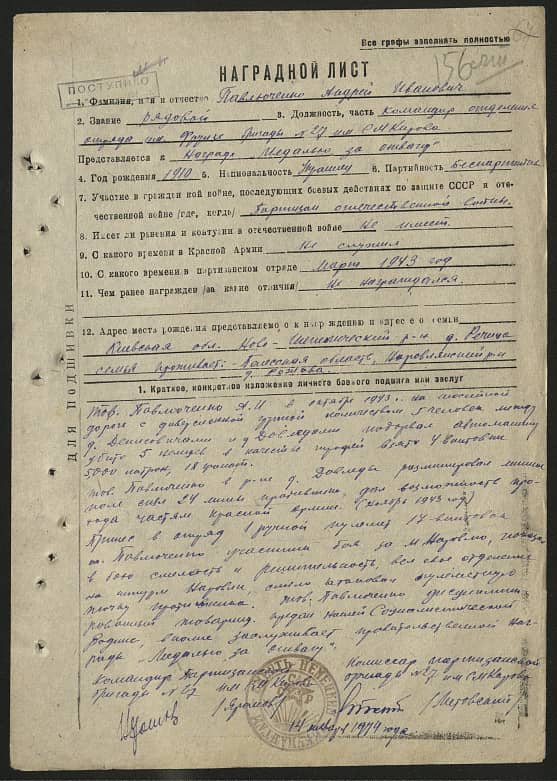 Все графы заполнять полностью
ПОСТУПИЛО
НАГРАДНОЙ ЛИСТ
1. Фамилия, имя и отчество Павлюченко Андрей Иванович
2. Звание рядовой 3. Должность, часть Командир отделения
отряда им. Фрунзе бригады №27 им. С.М.Кирова
Представляется к награде "Медалью за отвагу"
4. Год рождения 1910 5. Национальность 6. Партийность Беспартийн
7. Участие в гражданской войне, последующих боевых действиях по защите СССР и оте-
чественной войне /где, когда/ Партизан отечественной войны
8. Имеет ли ранения и контузии в отечественной войне Не имеет.
9. С какого времени в Красной Армии Не служил
10. С какого времени в партизанском отряде Март 1943 год
11. Чем ранее награжден /за какие отличия/ Не награждался.
12. Адрес места рождения представляемого к награждению и адрес его семьи
Киевская обл. Ново- р-н д. Речица
семья проживает:- Полесская область, Наровлянский р-н
д. Рожава.
ДЛЯ ПОДШИВКИ
1. Краткое, конкретное изложение личного боевого подвига или заслуг
Тов. Павлюченко А.И в октябре 1943 г. на шоссейной
дороге с диверсионной группой количеством 5 человек между
д. Денисовичами и д. Довляды подорвал автомашину
убито 5 немцев в качестве трофей взято 4 винтовки
5000 патрон, 18 гранат.
Тов. Павлюченко в р-не д. Довляды разминировал минное
поле снял 24 мины противника, дал возможность про-
хода частям Красной армии. (ноябрь 1943 год)
Принес в отряд 1 ручной пулемет 17 винтовок
т. Павлюченко участник боя за м. Наровлю, показал
в бою смелость и решительность, вел свое отделение
на штурм Наровли, смело штурмовал пулеметную
точку противника. Тов. Павлюченко дисциплини-
рованный товарищ. предан нашей Социалистической
Родине, вполне заслуживает правительственной наг-
рады - "Медалью за отвагу".
Командир Партизанской
бригады №27 им. С.М.Кирова
Комиссар партизанской
бригады №27 им. С.М.Кирова
14 января 1944 года